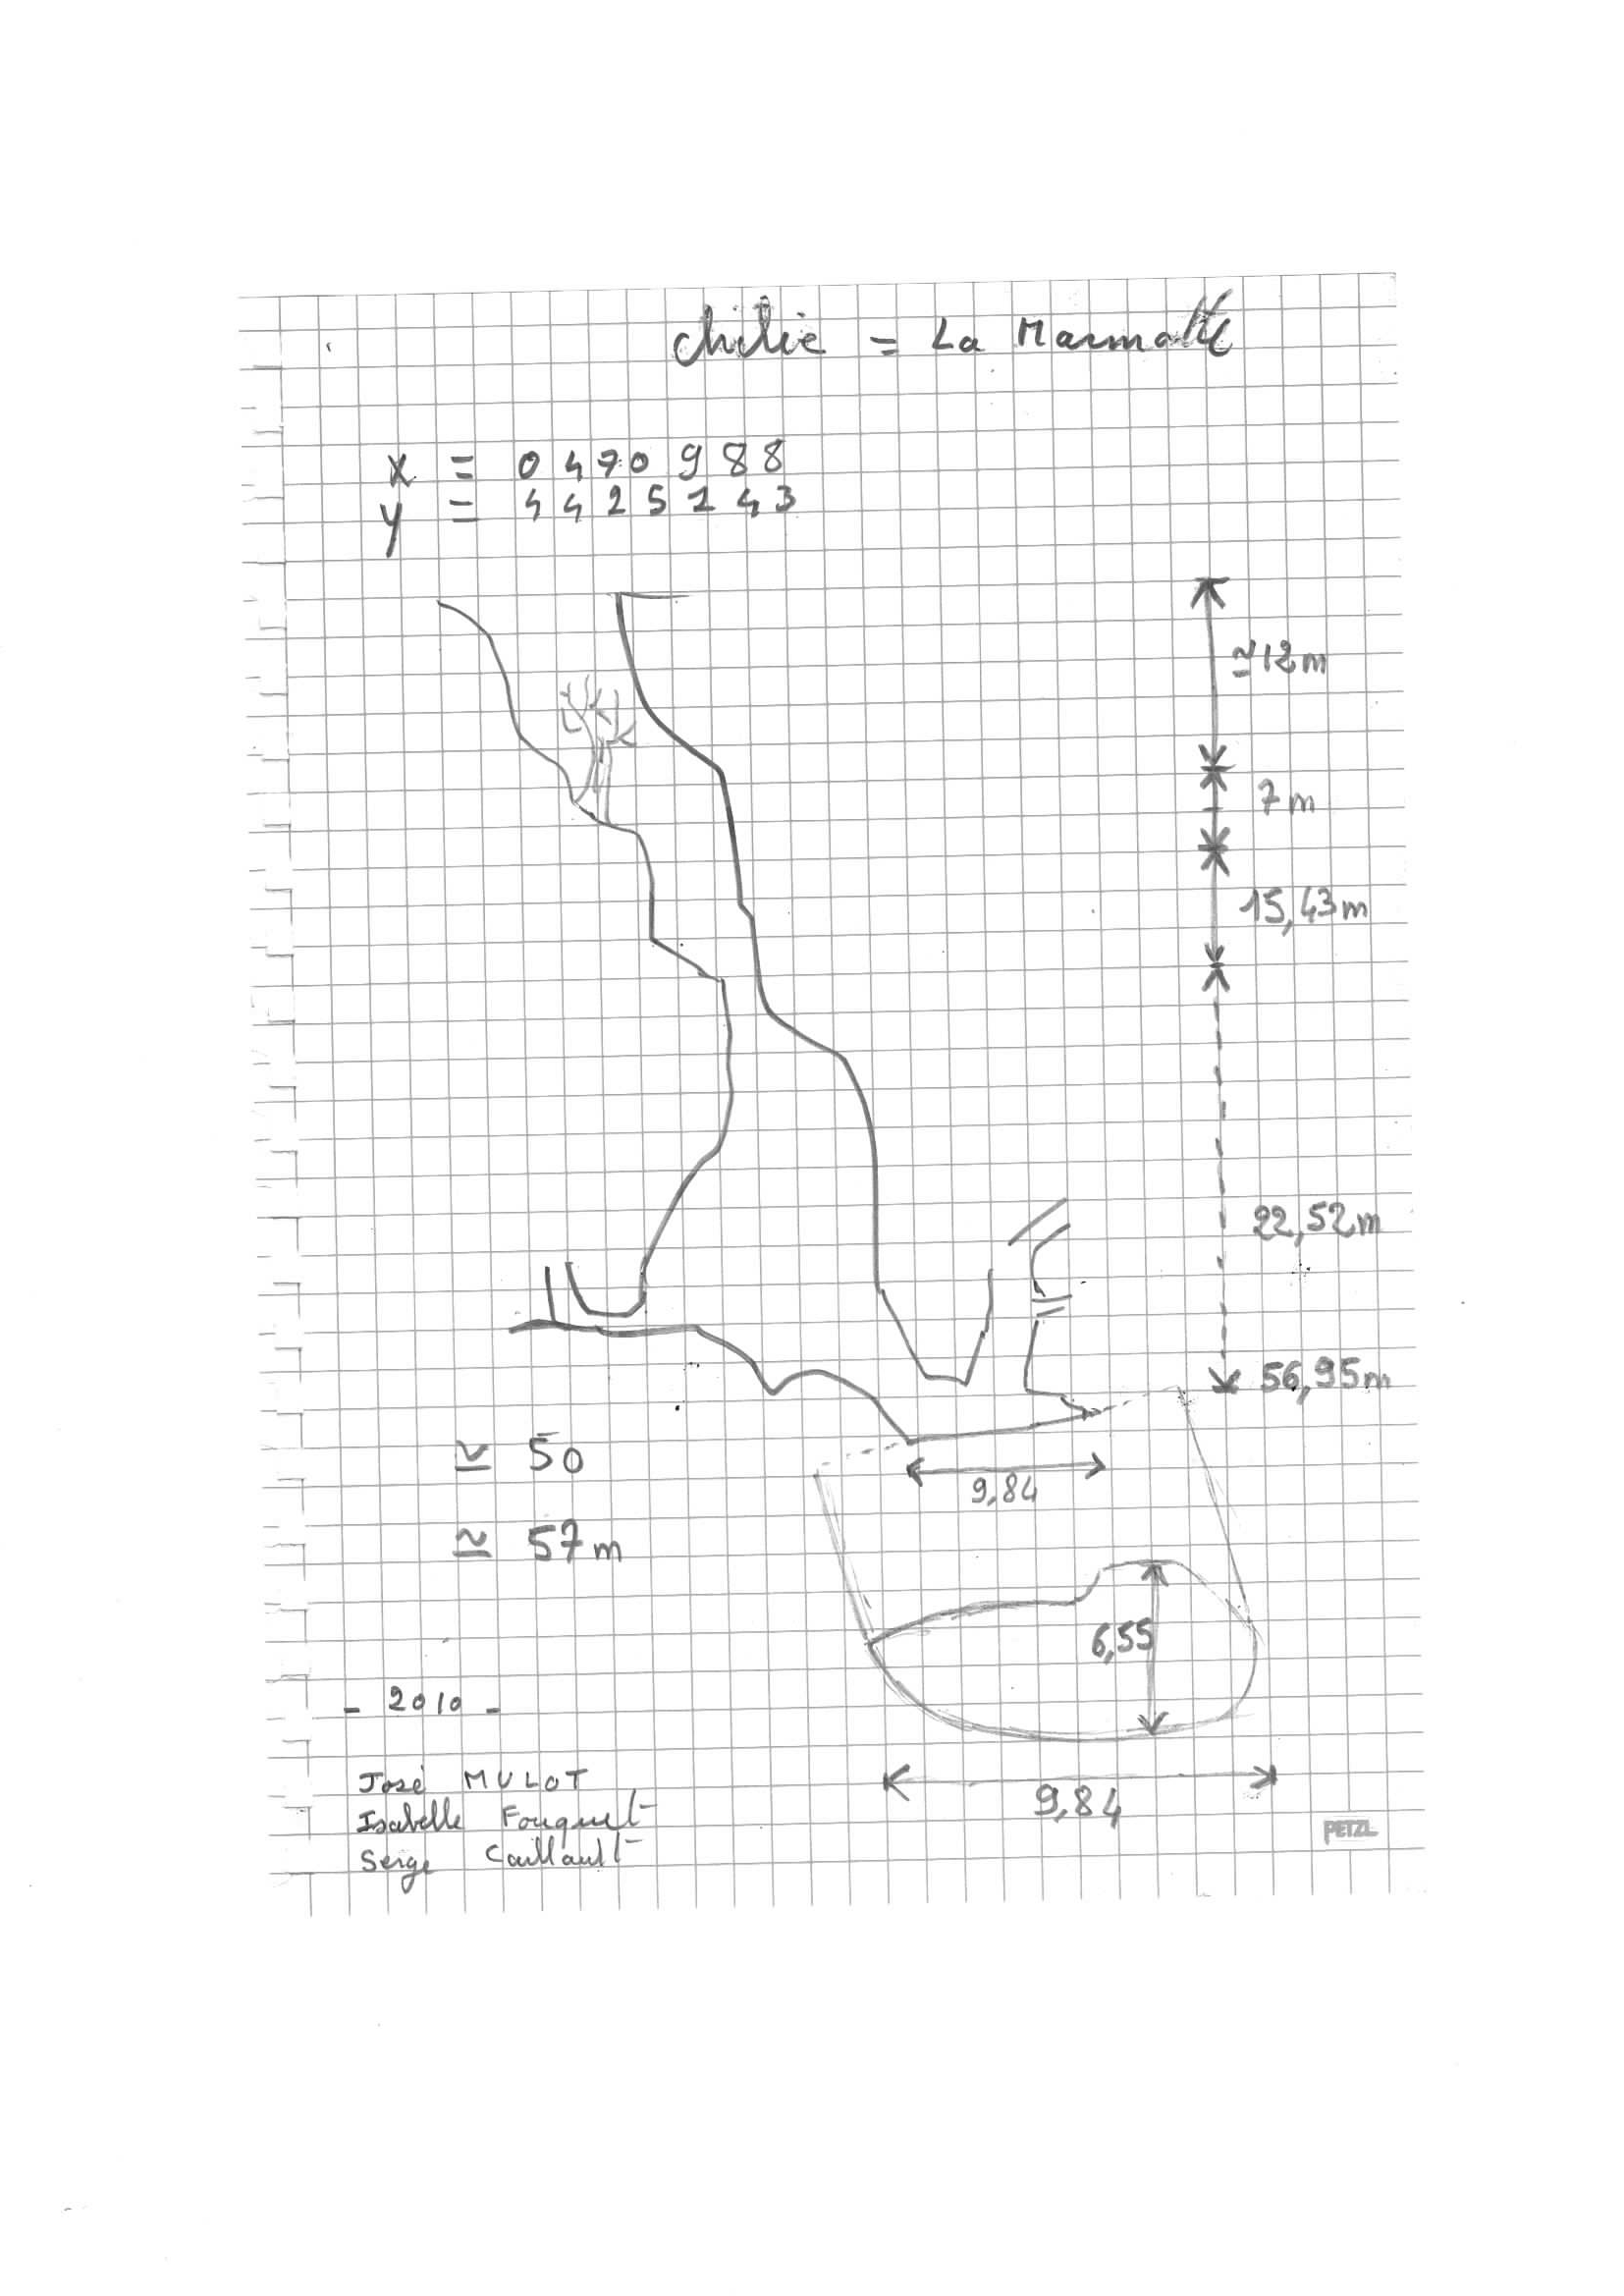 chilie = La Marmotte
X = 0470988
y = 4425143
≃12m
7m
15,43m
22,52m
56,95m
≃ 50
9,84
≃ 57m
6,55
- 2010 -
José MULOT
9,84
Isabelle Fouquet
PETZL
Serge Caillault